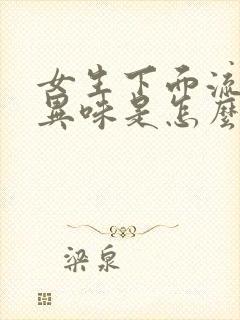 女生下面流
異味是怎麼
梁泉